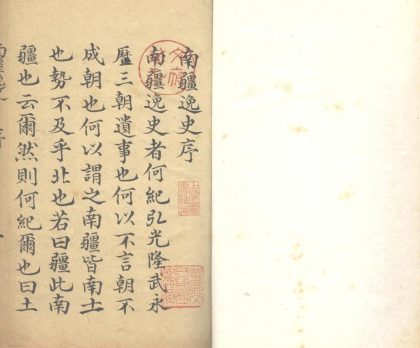 南疆逸史序
南疆逸史者何紀弘光隆武永
歷三朝遺事也何以不言朝不
成朝也何以謂之南疆皆南土
也勢不及乎北也若曰疆此南
疆也云爾然則何紀爾也曰土